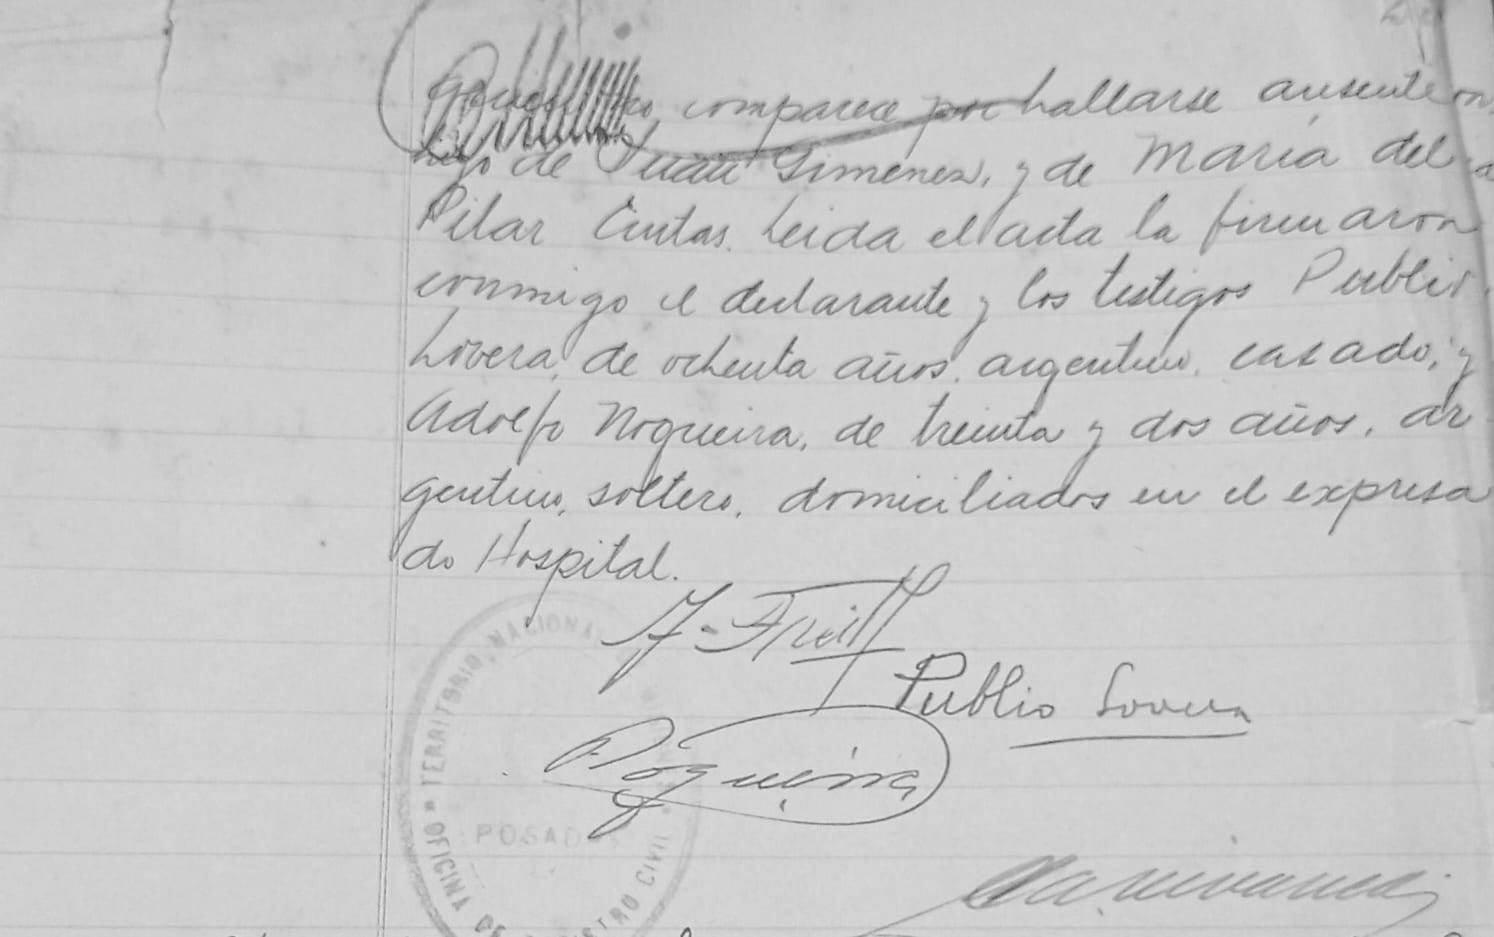 comparece por hallarse ausente
hijo de Juan Gimenez, y de Maria del
Pilar Leida el acta la firmaron
conmigo el declarante y los testigos Publio
Lovera, de ochenta años, argentino, casado, y
Adolfo Nogueira, de treinta y dos años, ar
gentino, soltero, domiciliados en el expresa
do Hospital.
Publio Lovera
Nogueira
TERRITORIO NACIONAL
OFICINA DEL REGISTRO CIVIL
POSADAS